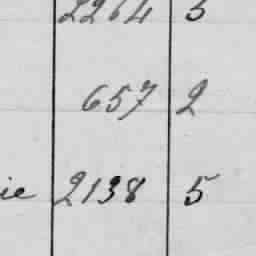 2264 5
657 2
ie 2138 5